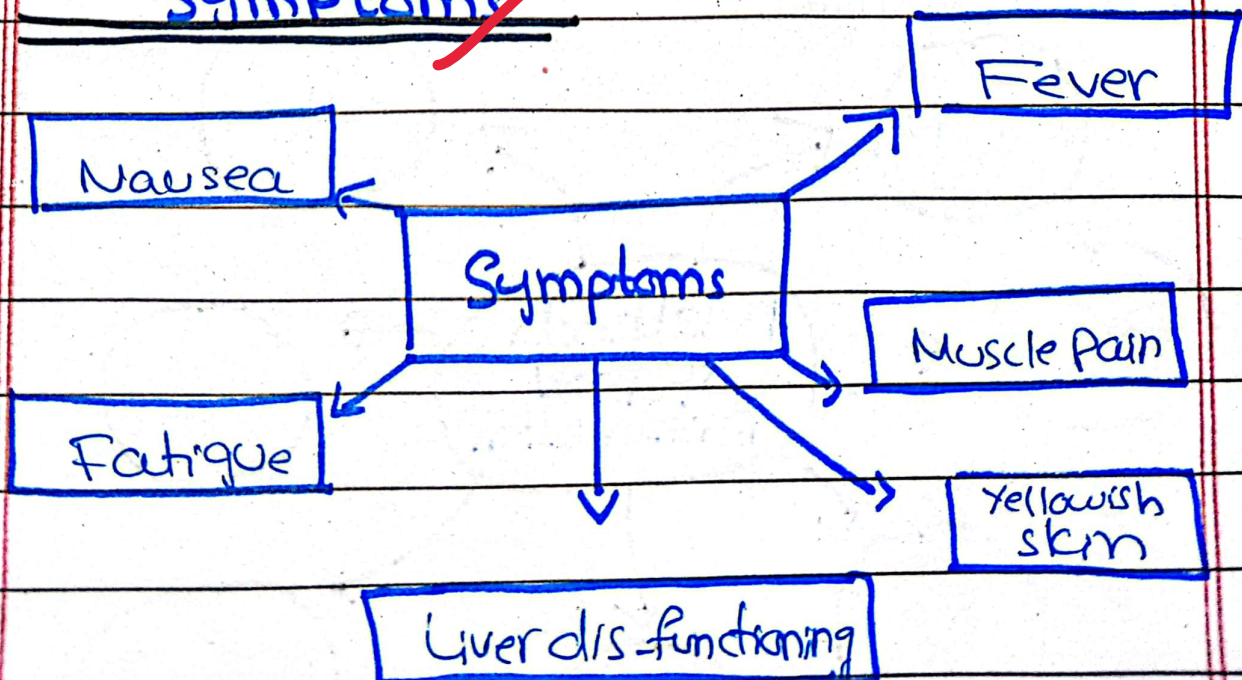 Symptoms
Fever
Nausea
Symptoms
Muscle Pain
Fatigue
Yellowish
skin
Liver dis functioning